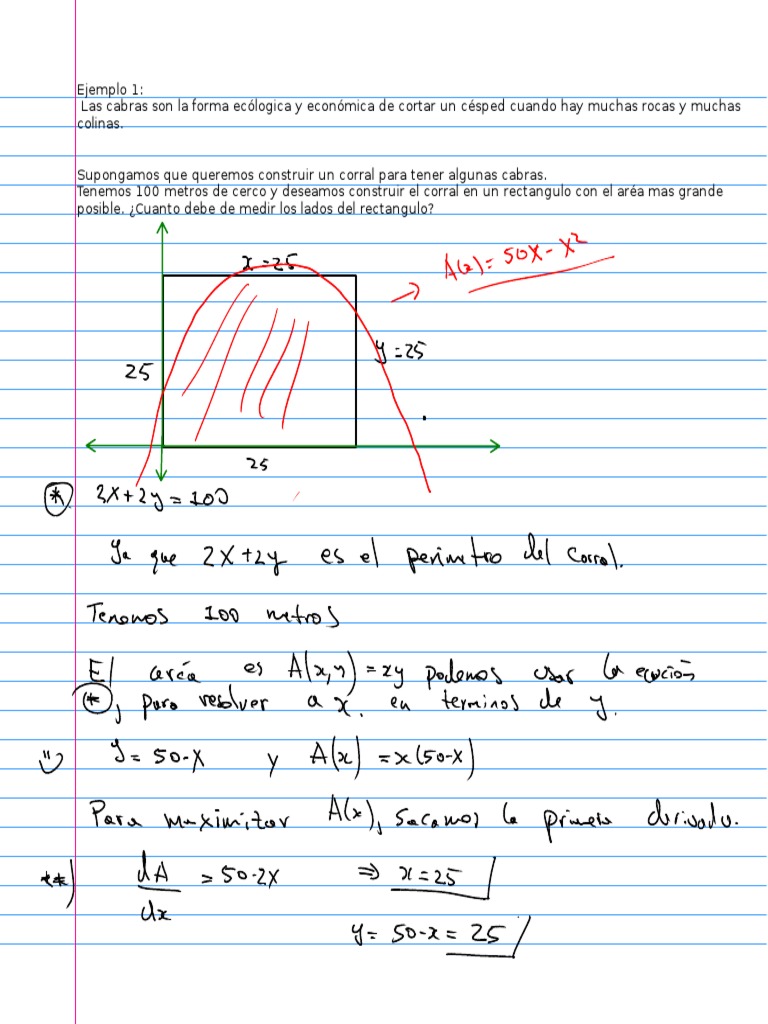 Ejemplo 1:
Las cabras son la forma ecólogica y económica de cortar un césped cuando hay muchas rocas y muchas
colinas.
Supongamos que queremos construir un corral para tener algunas cabras.
Tenemos 100 metros de cerco y deseamos construir el corral en un rectangulo con el aréa mas grande
posible. ¿Cuanto debe de medir los lados del rectangulo?
x = 25
→ A(x) = 50x - x²
y = 25
25
25
(*) 2x + 2y = 100
Ya que 2x + 2y es el perimetro del corral.
Tenemos 100 metros
El aréa es A(x,y) = xy podemos usar la ecución
(*), para resolver a x. en terminos de y.
y = 50-x y A(x) = x(50-x)
Para maximizar A(x), sacamos la primera derivada.
**) dA/dx = 50-2x ⇒ x = 25
y = 50-x = 25